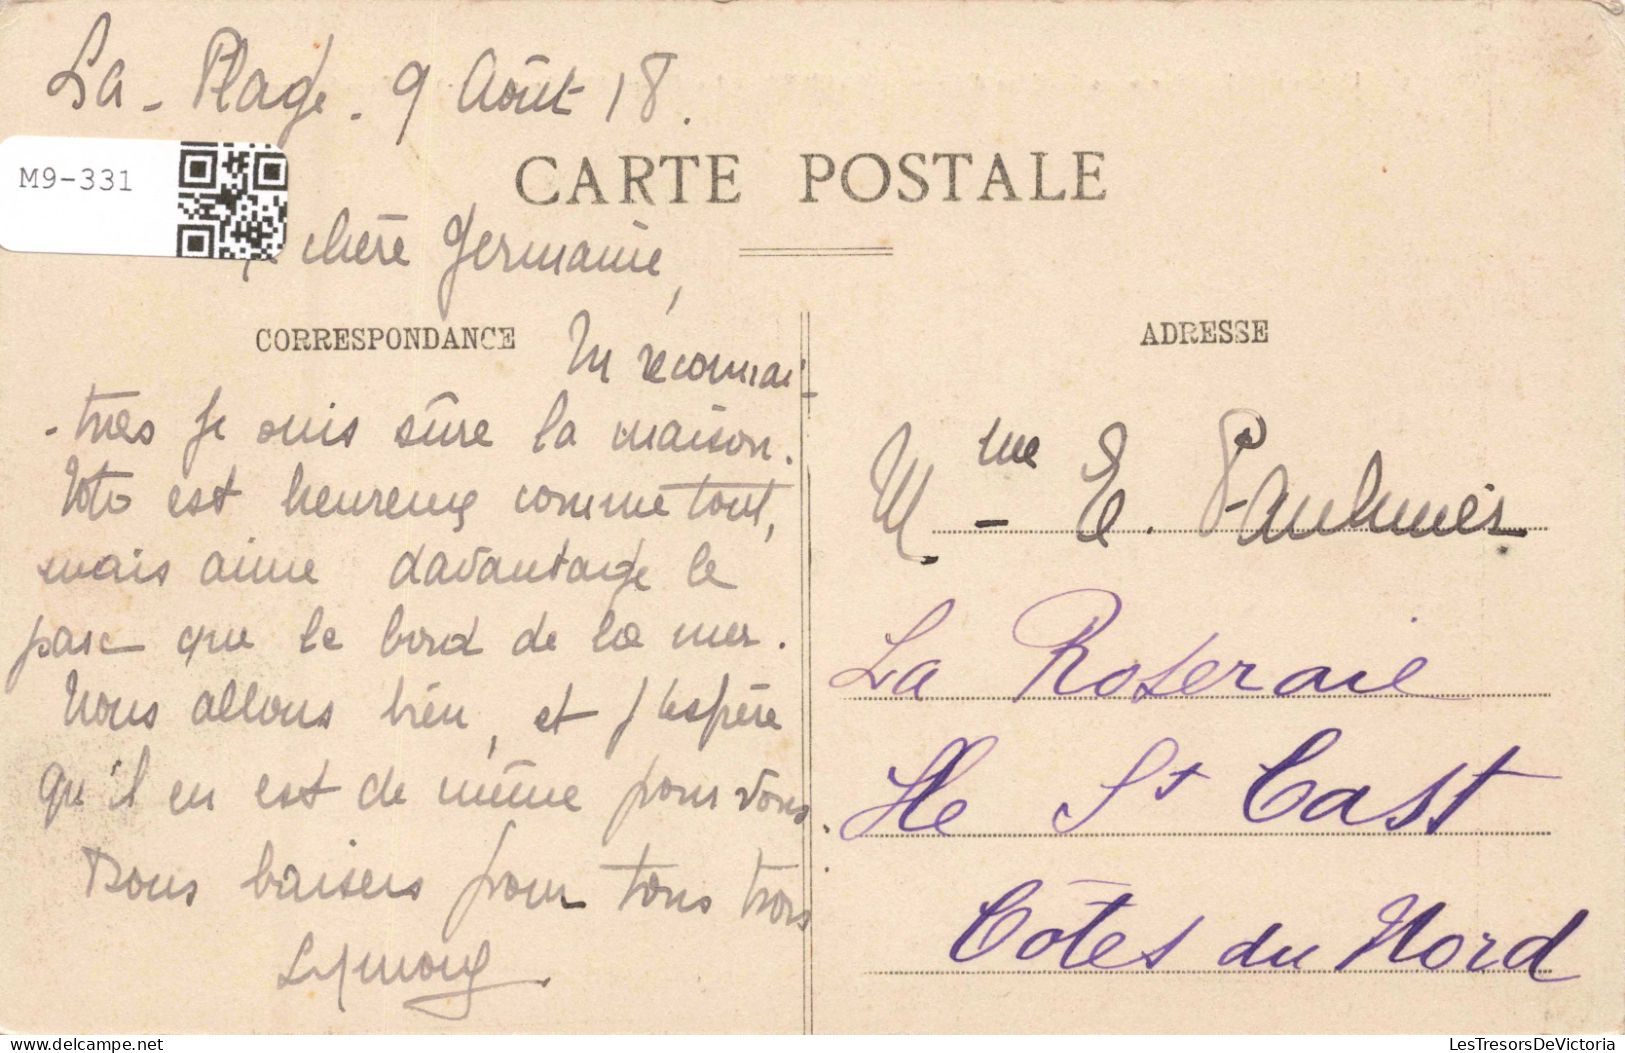 La - Plage - 9 Août 18.
M9-331
CARTE POSTALE
chère Germaine,
CORRESPONDANCE
ADRESSE
Tu reconnaî-
-tras je suis sûre la maison.
Toto est heureux comme tout,
mais aime davantage le
parc que le bord de la mer.
Nous allons bien, et j'espère
qu'il en est de même pour vous.
Bons baisers pour tous trois
Mme E. Paulmier
La Roseraie
St Cast
Côtes du Nord
LesTresorsDeVictoria
delcampe.net